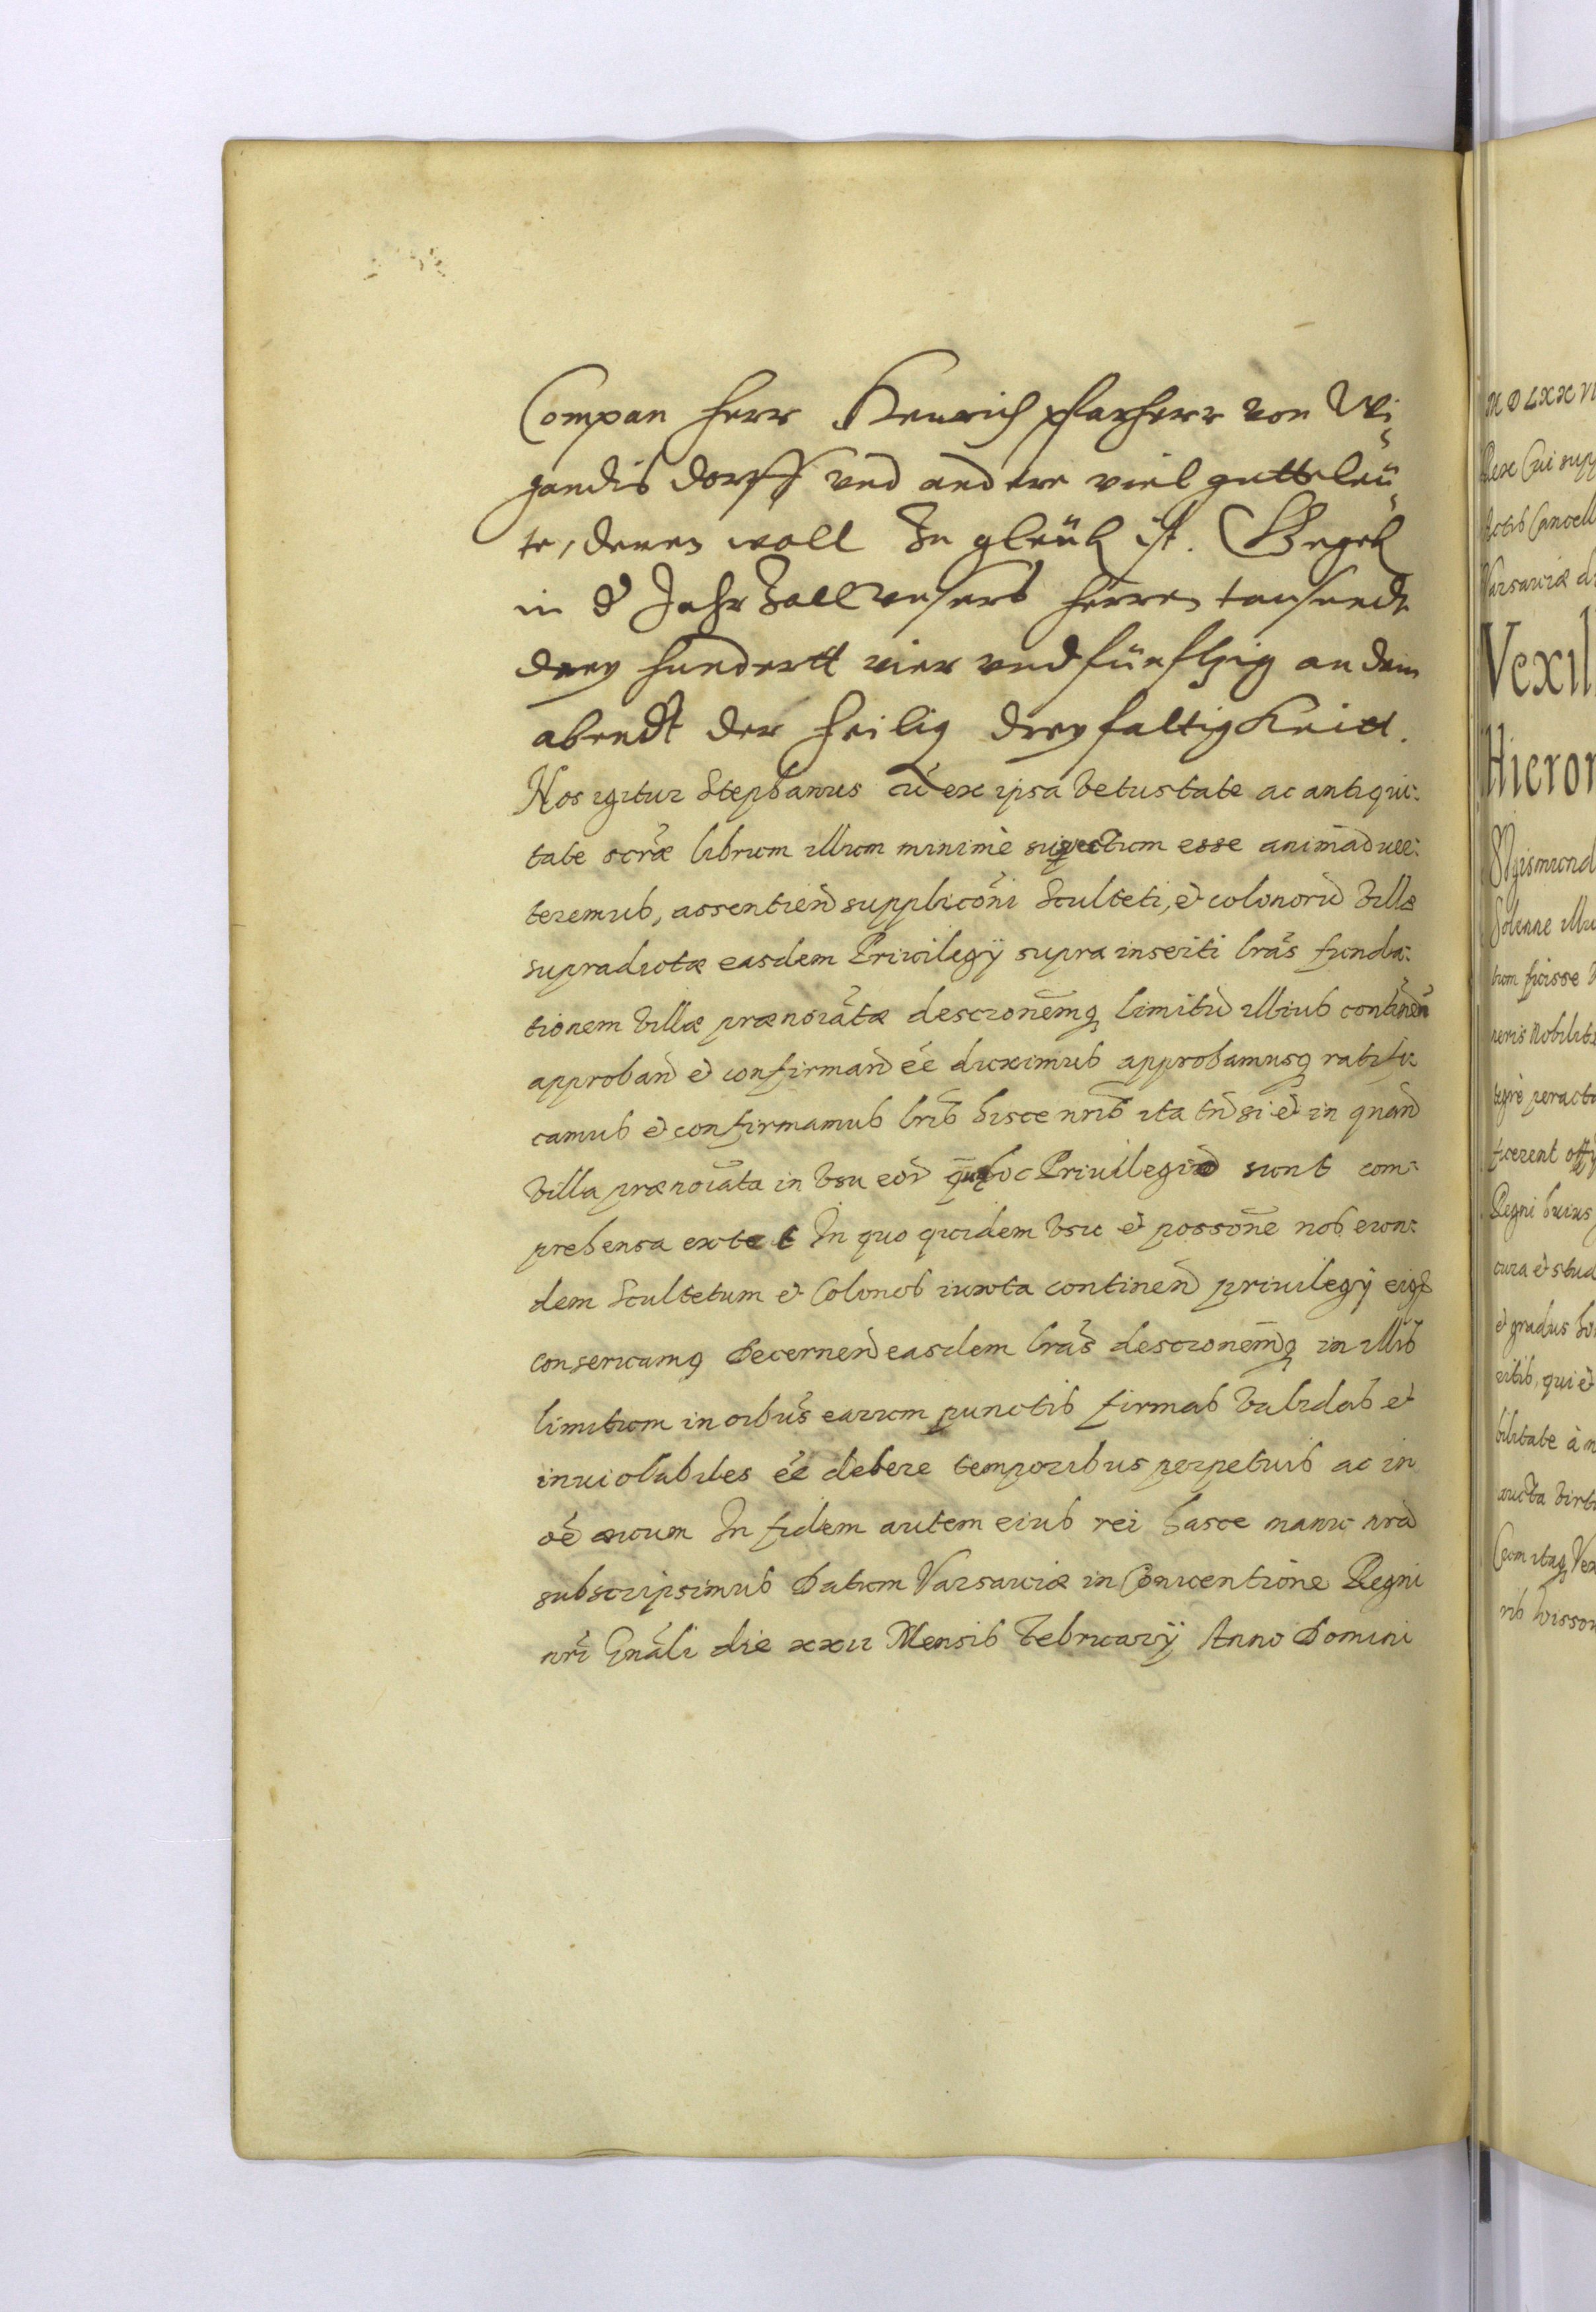 Compan Herr Heinrich Pfarherr von Wi-
gandis dorff und andere viel gutte leü-
te, denen woll zu gleüb ist. Gegeb
in d Jahr Zall unsers Herren tausendt
drey hundertt vier und fünfftzig an dem
abendt der heilig dreyfaltigkeitt.
Nos igitur Stephanus cũ ex ipsa vetustate ac antiqui:
tate scrãe librum illum minimè suspectum esse animaduer:
teremus, assentieñ supplicõni Sculteti, et colonorũ villæ
supradictæ easdem Priuilegÿ supra inserti lrãs funda:
tionem villæ prænoĩatæ descrõnemq limitũ illius continẽn
approbañ et confirmañ eẽ duximus approbamusq ratifi
camus et confirmamus lrĩs hisce nrĩs ita tñ si et in quañ
villa prænoĩata in vsu eoR quæ hoc Priuilegio sunt com:
prehensa extet In quo quidem vsu et possõne nos eun:
dem Scultetum et Colonos iuxta continen priuilegÿ eius
conseruamq Decerneñ easdem lrãs descrõnemq in illis
limitum in oĩbus earum punctis firmas validas et
inuiolabiles eẽ debere temporibus perpetuis ac in
oẽ æuum In fidem autem eius rei hasce manu nrã
subscripsimus Datum Varsauiæ in Conuentione Regni
nrĩ Gnãli die xxii Mensis Februarÿ Anno Domini
M D LXX VI
Rex Cui supp
Actis Cancell
Varsauiæ d
Vexil
Hieron
Sigismund
Solenne illu
tum fuisse
neris Nobilita
tegrè peracto
ficerent offi
Regni huius
cura et stud
et gradus ho
ritis, qui et
bilitate à m
aucta virt
Cum itaq Ve